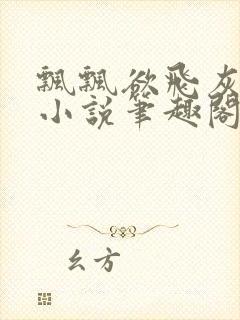 飄飄欲飛灰
小說筆趣閣
幺方